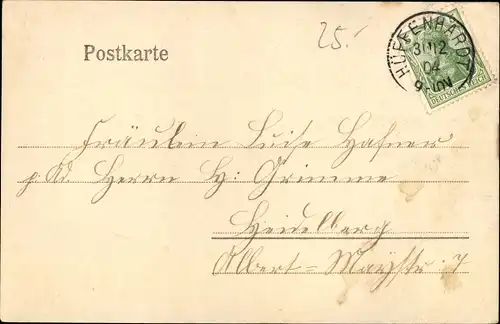 Postkarte
25.-
HÜFFENHARDT
31 12
04
9-10N
DEUTSCHES REICH
Fräulein Luise Hafner
p. Ad. Herrn H: Grimme
Heidelberg
Albert=Maystr. 7